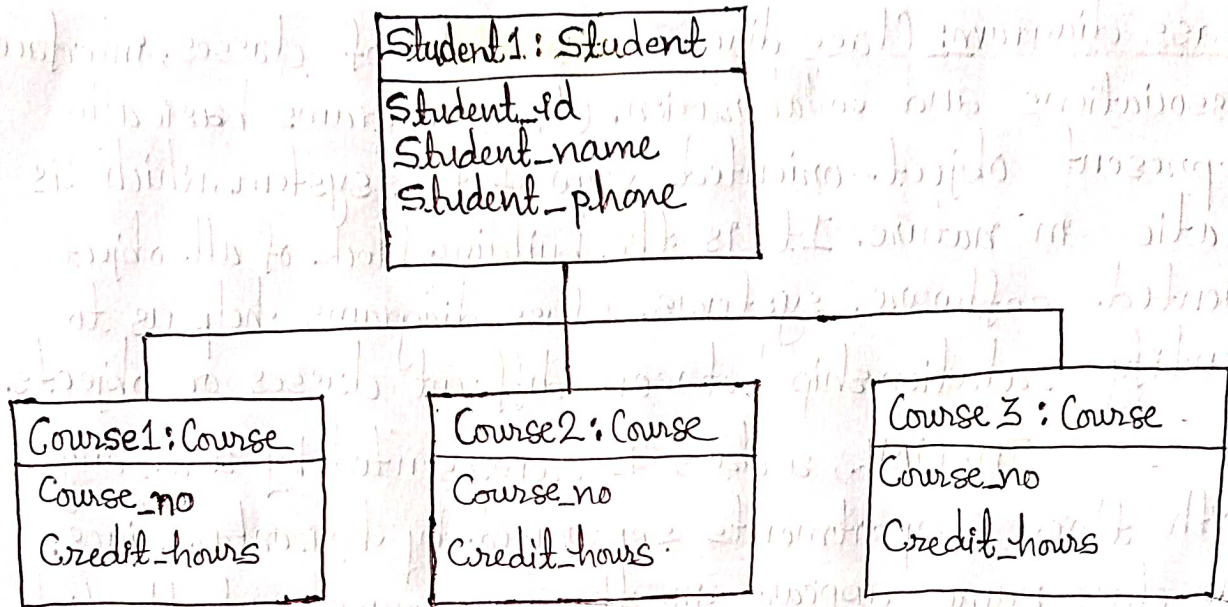 Student1 : Student
Student_id
Student_name
Student_phone
Course1 : Course
Course_no
Credit_hours
Course2 : Course
Course_no
Credit_hours
Course 3 : Course
Course_no
Credit_hours